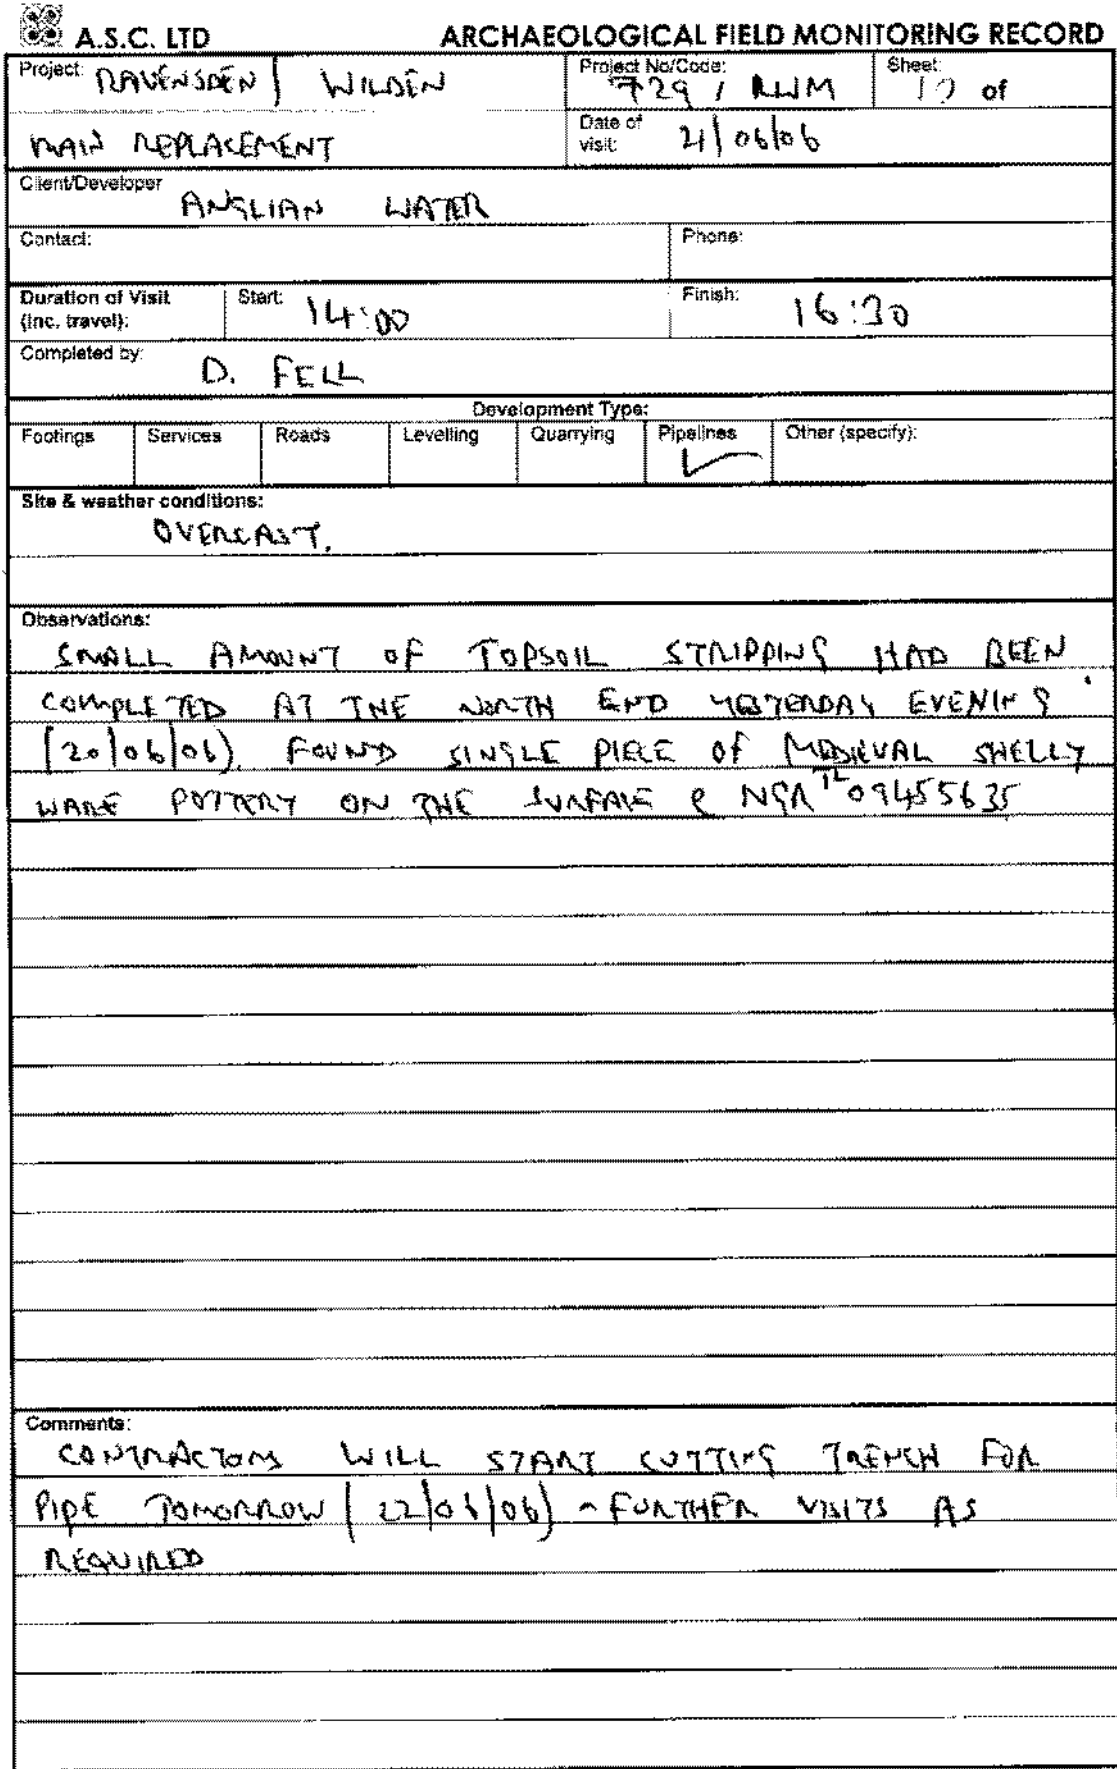 A.S.C. LTD ARCHAEOLOGICAL FIELD MONITORING RECORD
Project: RAVENSDEN / WILDEN Project No/Code: 729 / RWM Sheet: of
MAIN REPLACEMENT Date of visit: 21/06/06
Client/Developer ANGLIAN WATER
Contact: Phone:
Duration of Visit (inc. travel): Start: 14:00 Finish: 16:30
Completed by: D. FELL
Development Type:
Footings Services Roads Levelling Quarrying Pipelines ✓ Other (specify):
Site & weather conditions:
OVERCAST.
Observations:
SMALL AMOUNT OF TOPSOIL STRIPPING HAD BEEN
COMPLETED AT THE NORTH END YESTERDAY EVENING
(20/06/06). FOUND SINGLE PIECE OF MEDIEVAL SHELLY
WARE POTTERY ON THE SURFACE @ NGR TL 09455635
Comments:
CONTRACTORS WILL START CUTTING TRENCH FOR
PIPE TOMORROW (22/06/06) - FURTHER VISITS AS
REQUIRED